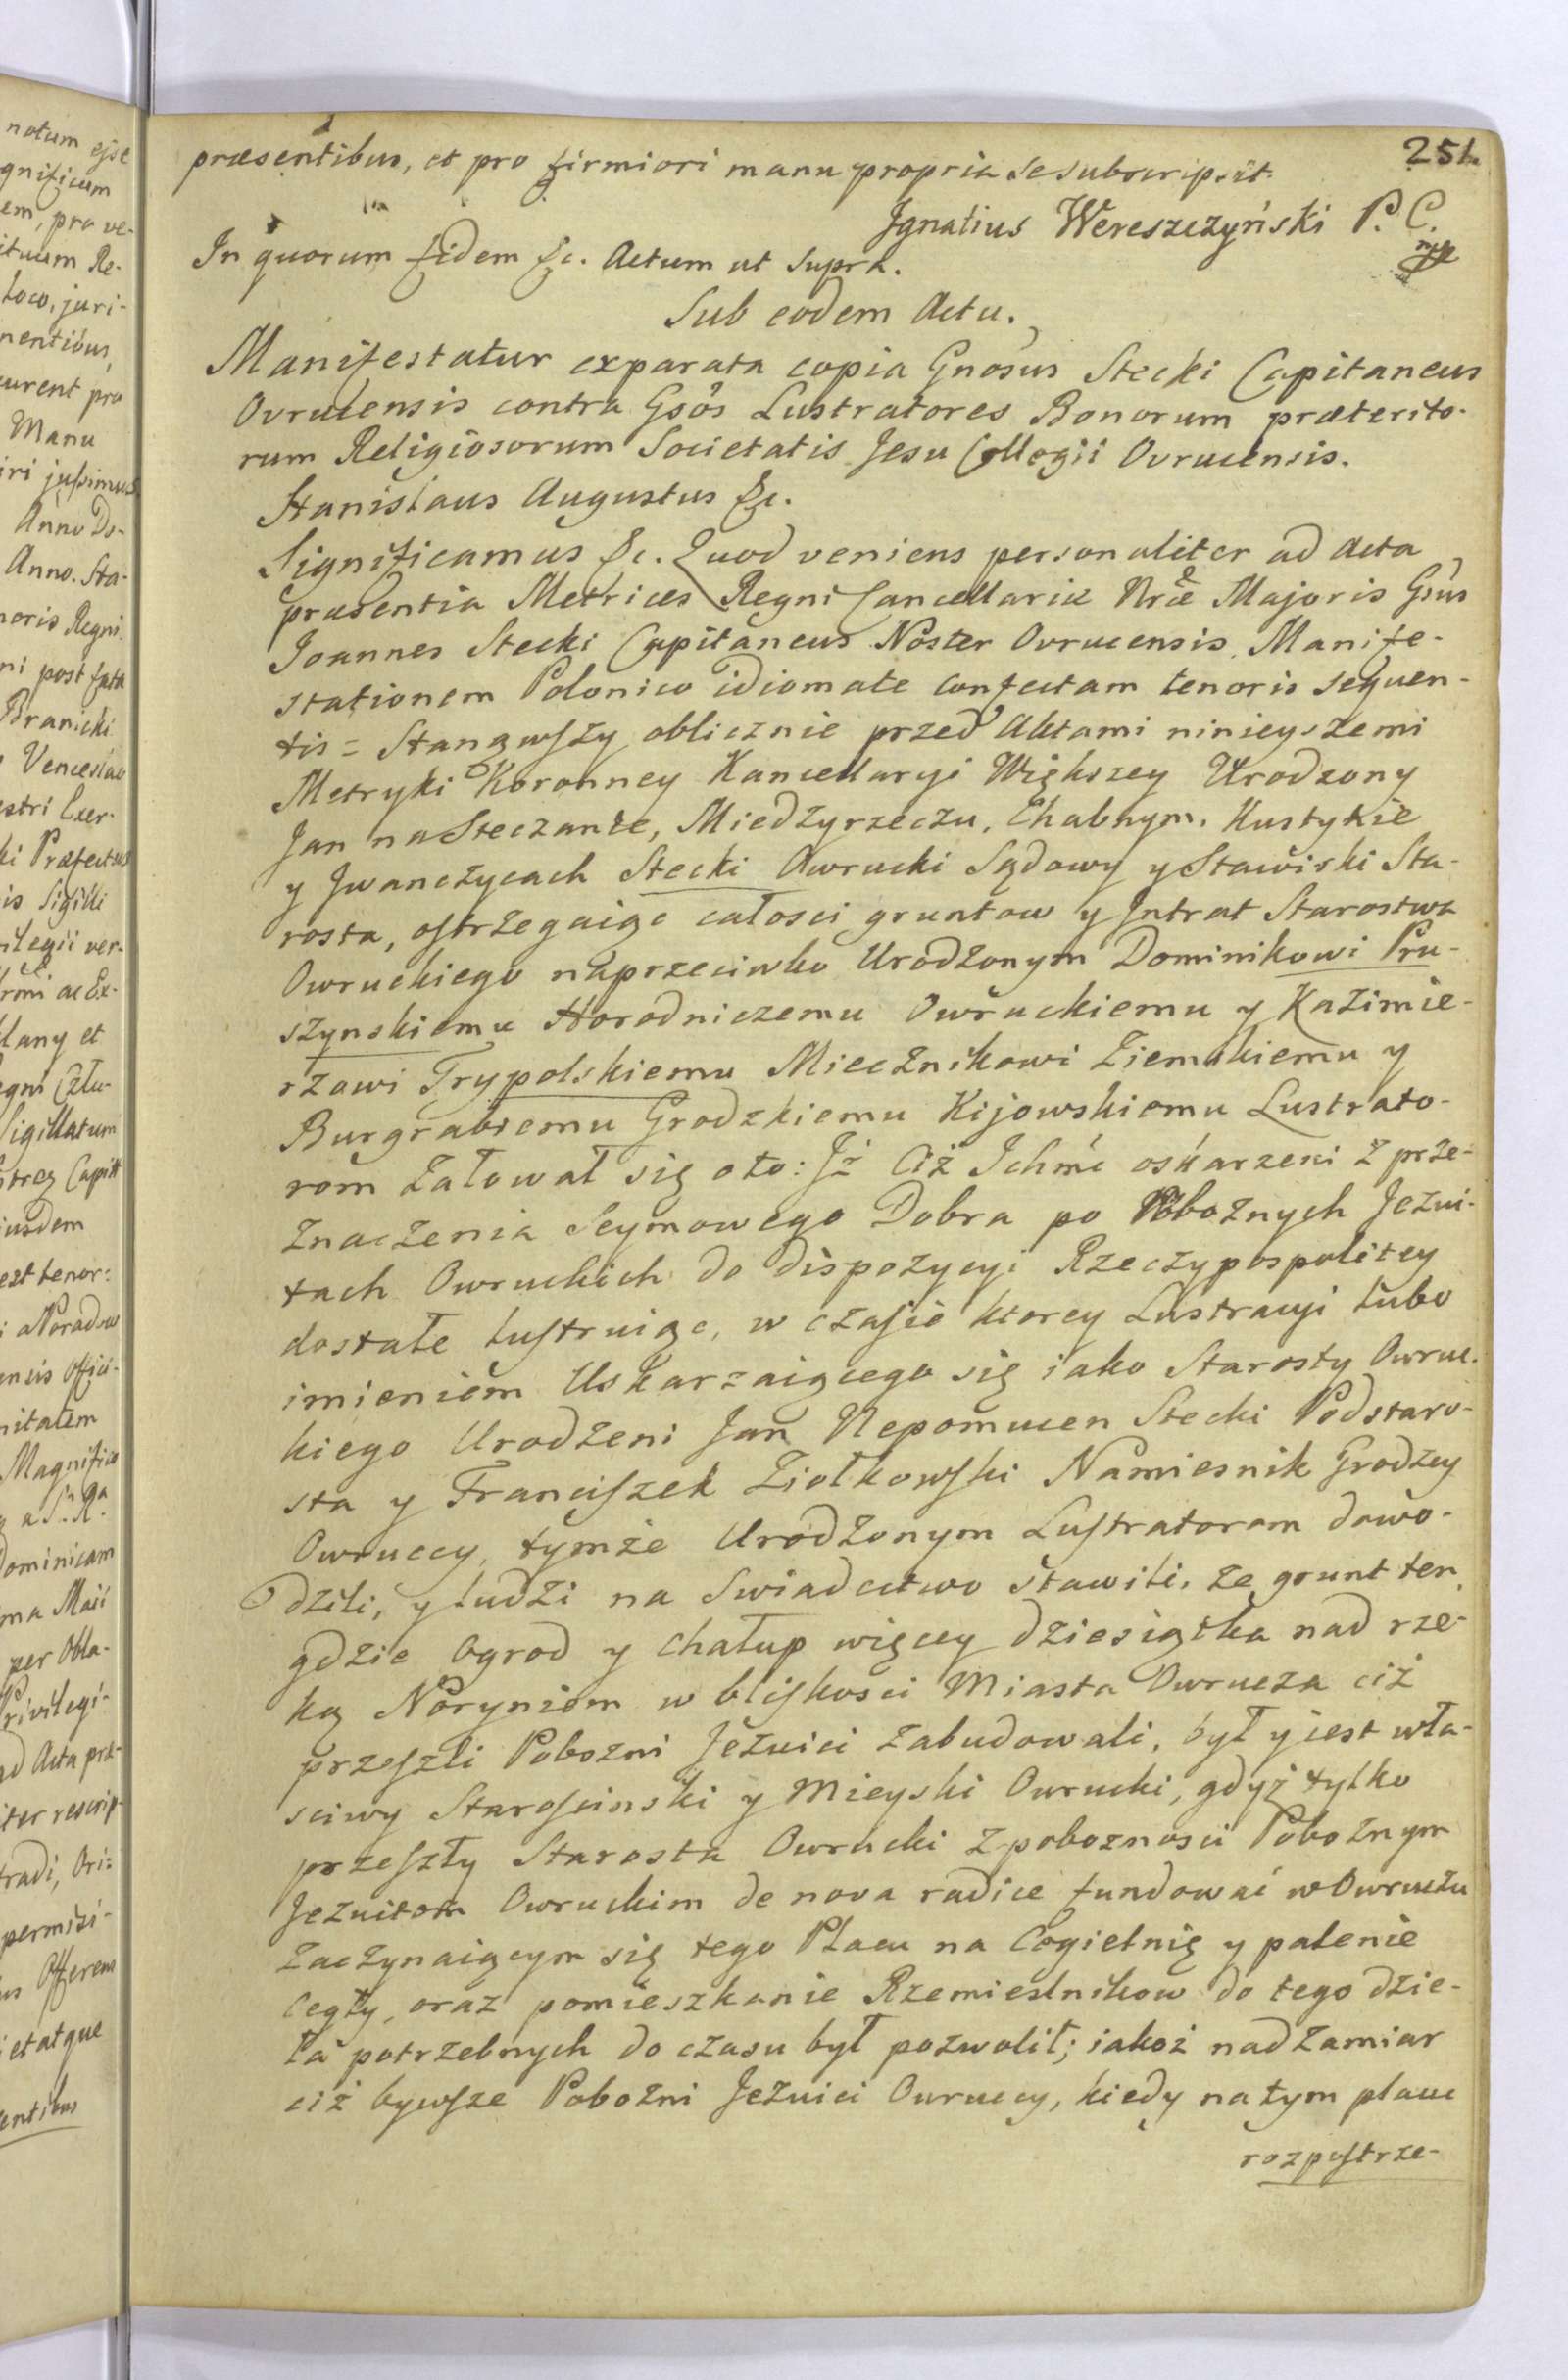 notum esse
gnificum
em, pro ve-
ituum Re-
loco, juri-
nentibus,
curent pro
Manu
iri jussimus
Anno Do-
Anno. Sta-
noris Regni
ni post fata
Branicki
Venceslao
estri Exer-
ki Præfectus
is Sigilli
vilegii ver-
ac Ex-
lany et
egni Człu-
Sigillatum
Capit
iusdem
est tenor:
i a Poradow
ensis offici-
nitatem
Magnifico
Dominicam
per Obla-
Privilegi-
ad Acta præ-
iter rescrip-
tradi, Ori=
permisi-
us Offerens
i et atque
entibus
251.
præsentibus, et pro firmiori manu propria se subscripsit.
Ignatius Wereszczyński P. C.
mp
In quorum fidem &c. Actum ut supra.
Sub eodem Actu.
Manifestatur ex parata copia Gnosus Stecki Capitaneus
Ovrucensis contra Gsos Lustratores Bonorum præterito-
rum Religiosorum Societatis Jesu Collegii Ovrucensis.
Stanislaus Augustus &c.
Significamus &c. Quod veniens personaliter ad Acta
præsentia Metrices Regni Cancellariæ Nræ Majoris Gsus
Joannes Stecki Capitaneus Noster Ovrucensis, Manife-
stationem Polonico idiomate confectam tenoris sequen-
tis = Stanąwszy oblicznie przed Aktami ninieyszemi
Metryki Koronney Kancellaryi Większey Urodzony
Jan na Steczance, Miedzyrzeczu, Chabnym, Kustykie
y Jwanczycach Stecki Owrucki Sądowy y Stawiski Sta-
rosta, ostrzegaiąc całosci gruntow y Jntrat Starostwa
Owruckiego naprzeciwko Urodzonym Dominikowi Pru-
szynskiemu Horodniczemu Owruckiemu y Kazimie-
rzowi Trypolskiemu Miecznikowi Ziemskiemu y
Burgrabiemu Grodzkiemu Kijowskiemu Lustrato-
rom Załował się o to: Jż Ciż Ichmć oskarzeni z prze-
znaczenia Seymowego Dobra po Pobożnych Jezui-
tach Owruckich do dispozycyi Rzeczypospolitey
dostałe lustruiąc, w czasie ktorey Lustracyi lubo
imieniem Uskarzaiącego się iako Starosty Owruc-
kiego Urodzeni Jan Nepomucen Stecki Podstaro-
sta y Franciszek Ziołkowski Namiesnik Grodzcy
Owruccy, tymże Urodzonym Lustratorom dowo-
dzili, y ludzi na Swiadectwo stawili, że grunt ten
gdzie Ogrod y Chałup więcey dziesiątka nad rze-
ką Noryniem w bliskosci Miasta Owrucza ciż
przeszli Pobozni Jezuici zabudowali, był y iest wła-
sciwy Starosciński y Mieyski Owrucki, gdyż tylko
przeszły Starosta Owrucki z poboznosci Pobożnym
Jezuitom Owruckim de nova radice fundować w Owruczu
zaczynaiącym się tego Placu na Cegielnię y palenie
Cegły, oraz pomieszkanie Rzemieslnikow do tego dzie-
ła potrzebnych do czasu był pozwolił; iakoż nad zamiar
ciż bywsze Pobożni Jezuici Owruccy, kiedy na tym placu
rozpostrze-